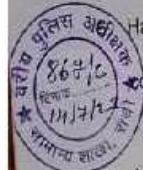 वरीय पुलिस अधीक्षक
867/C
दिनांक
14/7/22
सामान्य शाखा, रांची